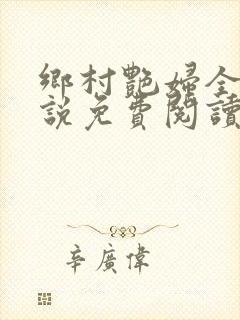 鄉村艷婦全
說免費閱讀
辛廣偉